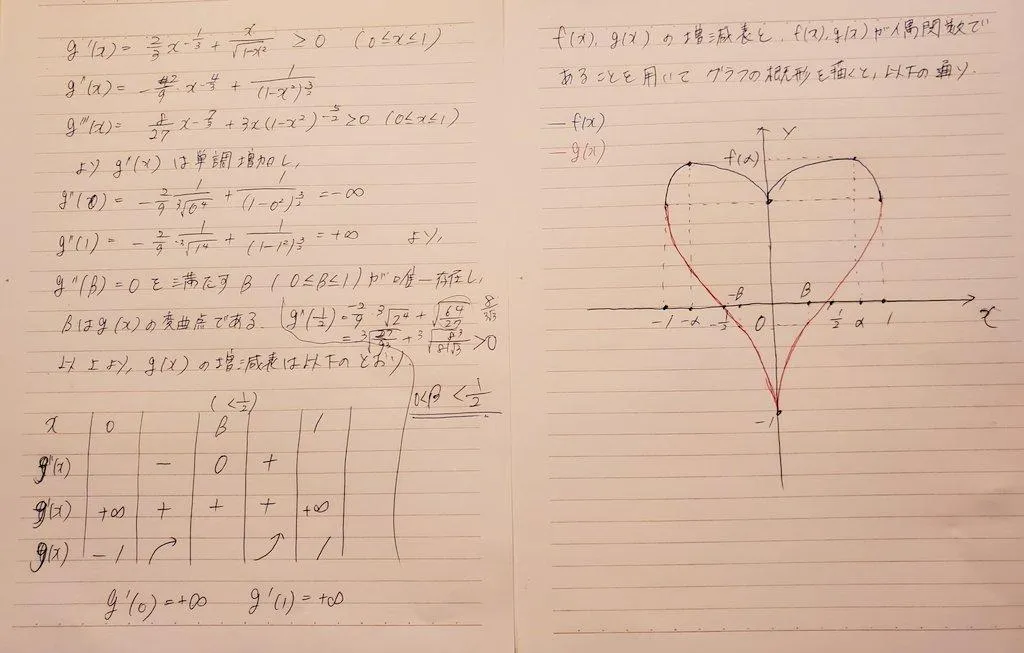 g'(x) = 2/3 x^{-1/3} + x/√(1-x²) ≥ 0 (0≤x≤1)
g''(x) = -2/9 · x^{-4/3} + 1/(1-x²)^{3/2}
g'''(x) = 8/27 x^{-7/3} + 3x(1-x²)^{-5/2} ≥ 0 (0≤x≤1)
より g''(x) は単調増加し,
g''(0) = -2/9 1/∛0⁴ + 1/(1-0²)^{3/2} = -∞
g''(1) = -2/9 · 1/∛1⁴ + 1/(1-1²)^{3/2} = +∞ より,
g''(β) = 0 を満たす β (0≤β≤1) が唯一存在し,
βは g(x) の変曲点である.
g''(1/2) = -2/9 · ∛2⁴ + √(64/27) 8/3√3
> 0
以上より, g(x) の増減表は以下のとおり
0<β<1/2
(<1/2)
x 0 β 1
g''(x) - 0 +
g'(x) +∞ + + + +∞
g(x) -1 1
g'(0) = +∞ g'(1) = +∞
f(x), g(x) の増減表と, f(x), g(x) が偶関数で
あることを用いて グラフの概形を描くと, 以下の通り.
— f(x)
— g(x)
y
f(α)
1
-β β
-1 -α -1/2 0 1/2 α 1 x
-1